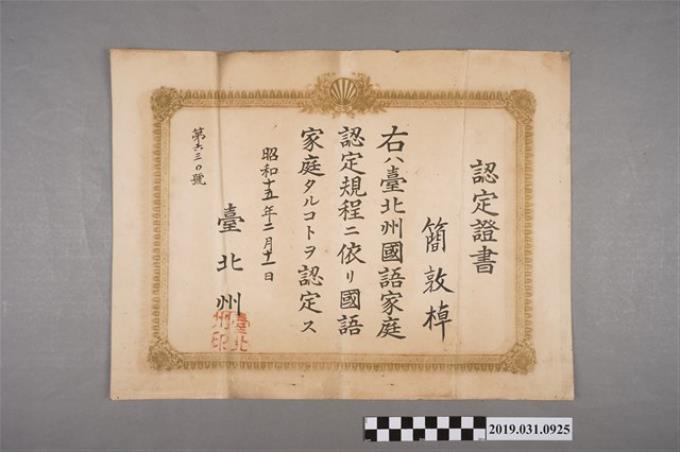 認定證書
簡敦棹
右ハ臺北州國語家庭
認定規程ニ依リ國語
家庭タルコトヲ認定ス
昭和十五年二月十一日
臺北州
臺北州印
第六三〇號
2019.031.0925